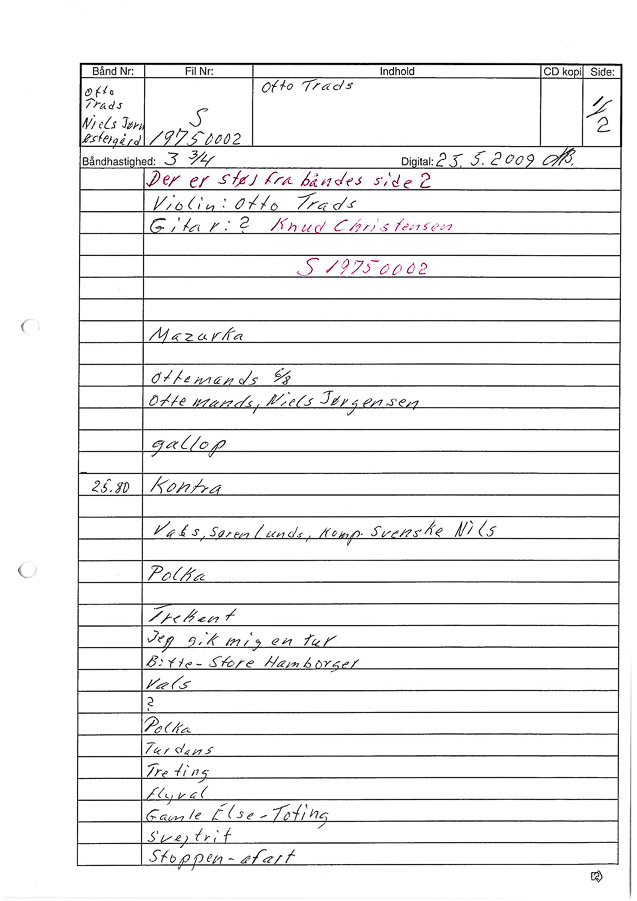 Bånd Nr: Fil Nr: Indhold CD kopi Side:
Otto Trads Niels Jørn Østergård S 19750002 Otto Trads 1/2
Båndhastighed: 3 3/4 Digital: 25.5.2009
Der er støj fra båndes side 2
Violin: Otto Trads
Gitar: ? Knud Christensen
S 19750002
Mazurka
Ottemands 6/8
Ottemands, Niels Jørgensen
gallop
25.80 Kontra
Vals, Søren Lunds, Komp. Svenske Nils
Polka
Trekant
Jeg gik mig en tur
Bitte-Store Hamborger
Vals
?
Polka
Turdans
Treting
Flyval
Gamle Else-Toting
Svejtrit
Stoppen-afart